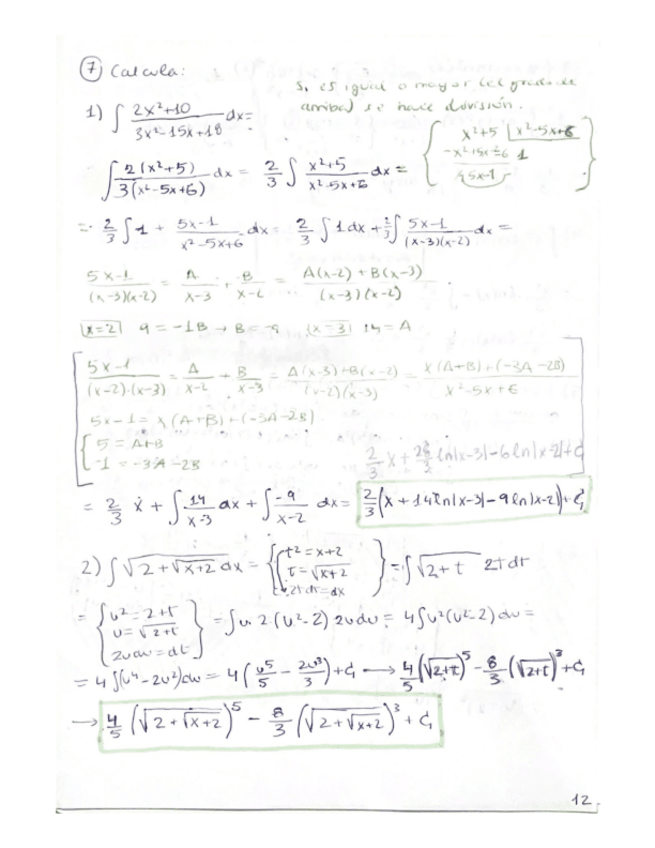 ⑦ Calcula:
Si es igual o mayor del grado de
arriba se hace división.
1) ∫ (2x²+10)/(3x²-15x+18) dx=
{ x²+5 | x²-5x+6
-x²+5x-6  1
5x-1 }
∫ 2(x²+5)/3(x²-5x+6) dx = 2/3 ∫ (x²+5)/(x²-5x+6) dx =
= 2/3 ∫ 1 + (5x-1)/(x²-5x+6) dx = 2/3 ∫ 1 dx + 2/3 ∫ (5x-1)/((x-3)(x-2)) dx =
(5x-1)/((x-3)(x-2)) = A/(x-3) + B/(x-2) = (A(x-2) + B(x-3))/((x-3)(x-2))
x=2 9 = -1B → B = -9 x=3 14 = A
[ (5x-1)/((x-2)·(x-3)) = A/(x-2) + B/(x-3) = (A(x-3)+B(x-2))/((x-2)(x-3)) = (x(A+B)+(-3A-2B))/(x²-5x+6)
5x-1 = x(A+B)+(-3A-2B)
{ 5 = A+B
-1 = -3A-2B ]
2/3 x + 28/3 ln|x-3| - 6 ln|x-2| + C
= 2/3 x + ∫ 14/(x-3) dx + ∫ -9/(x-2) dx = 2/3 (x + 14 ln|x-3| - 9 ln|x-2|) + C
2) ∫ √(2+√(x+2)) dx = { t² = x+2
t = √(x+2)
2t dt = dx } = ∫ √(2+t) 2t dt
= { u² = 2+t
u = √(2+t)
2u du = dt } = ∫ u·2·(u²-2) 2u du = 4 ∫ u²(u²-2) du =
= 4 ∫ (u⁴-2u²) du = 4 (u⁵/5 - 2u³/3) + C → 4/5 (√(2+t))⁵ - 8/3 (√(2+t))³ + C
→ 4/5 (√(2+√(x+2)))⁵ - 8/3 (√(2+√(x+2)))³ + C
12